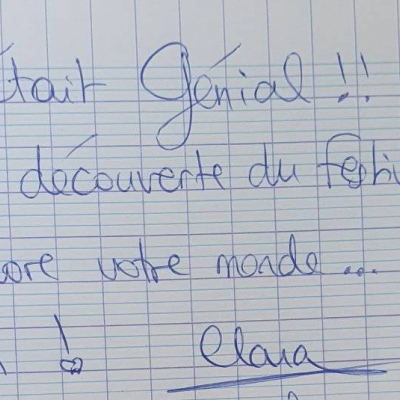 était Génial !!
découverte du festi
ore votre monde ...
! Clara